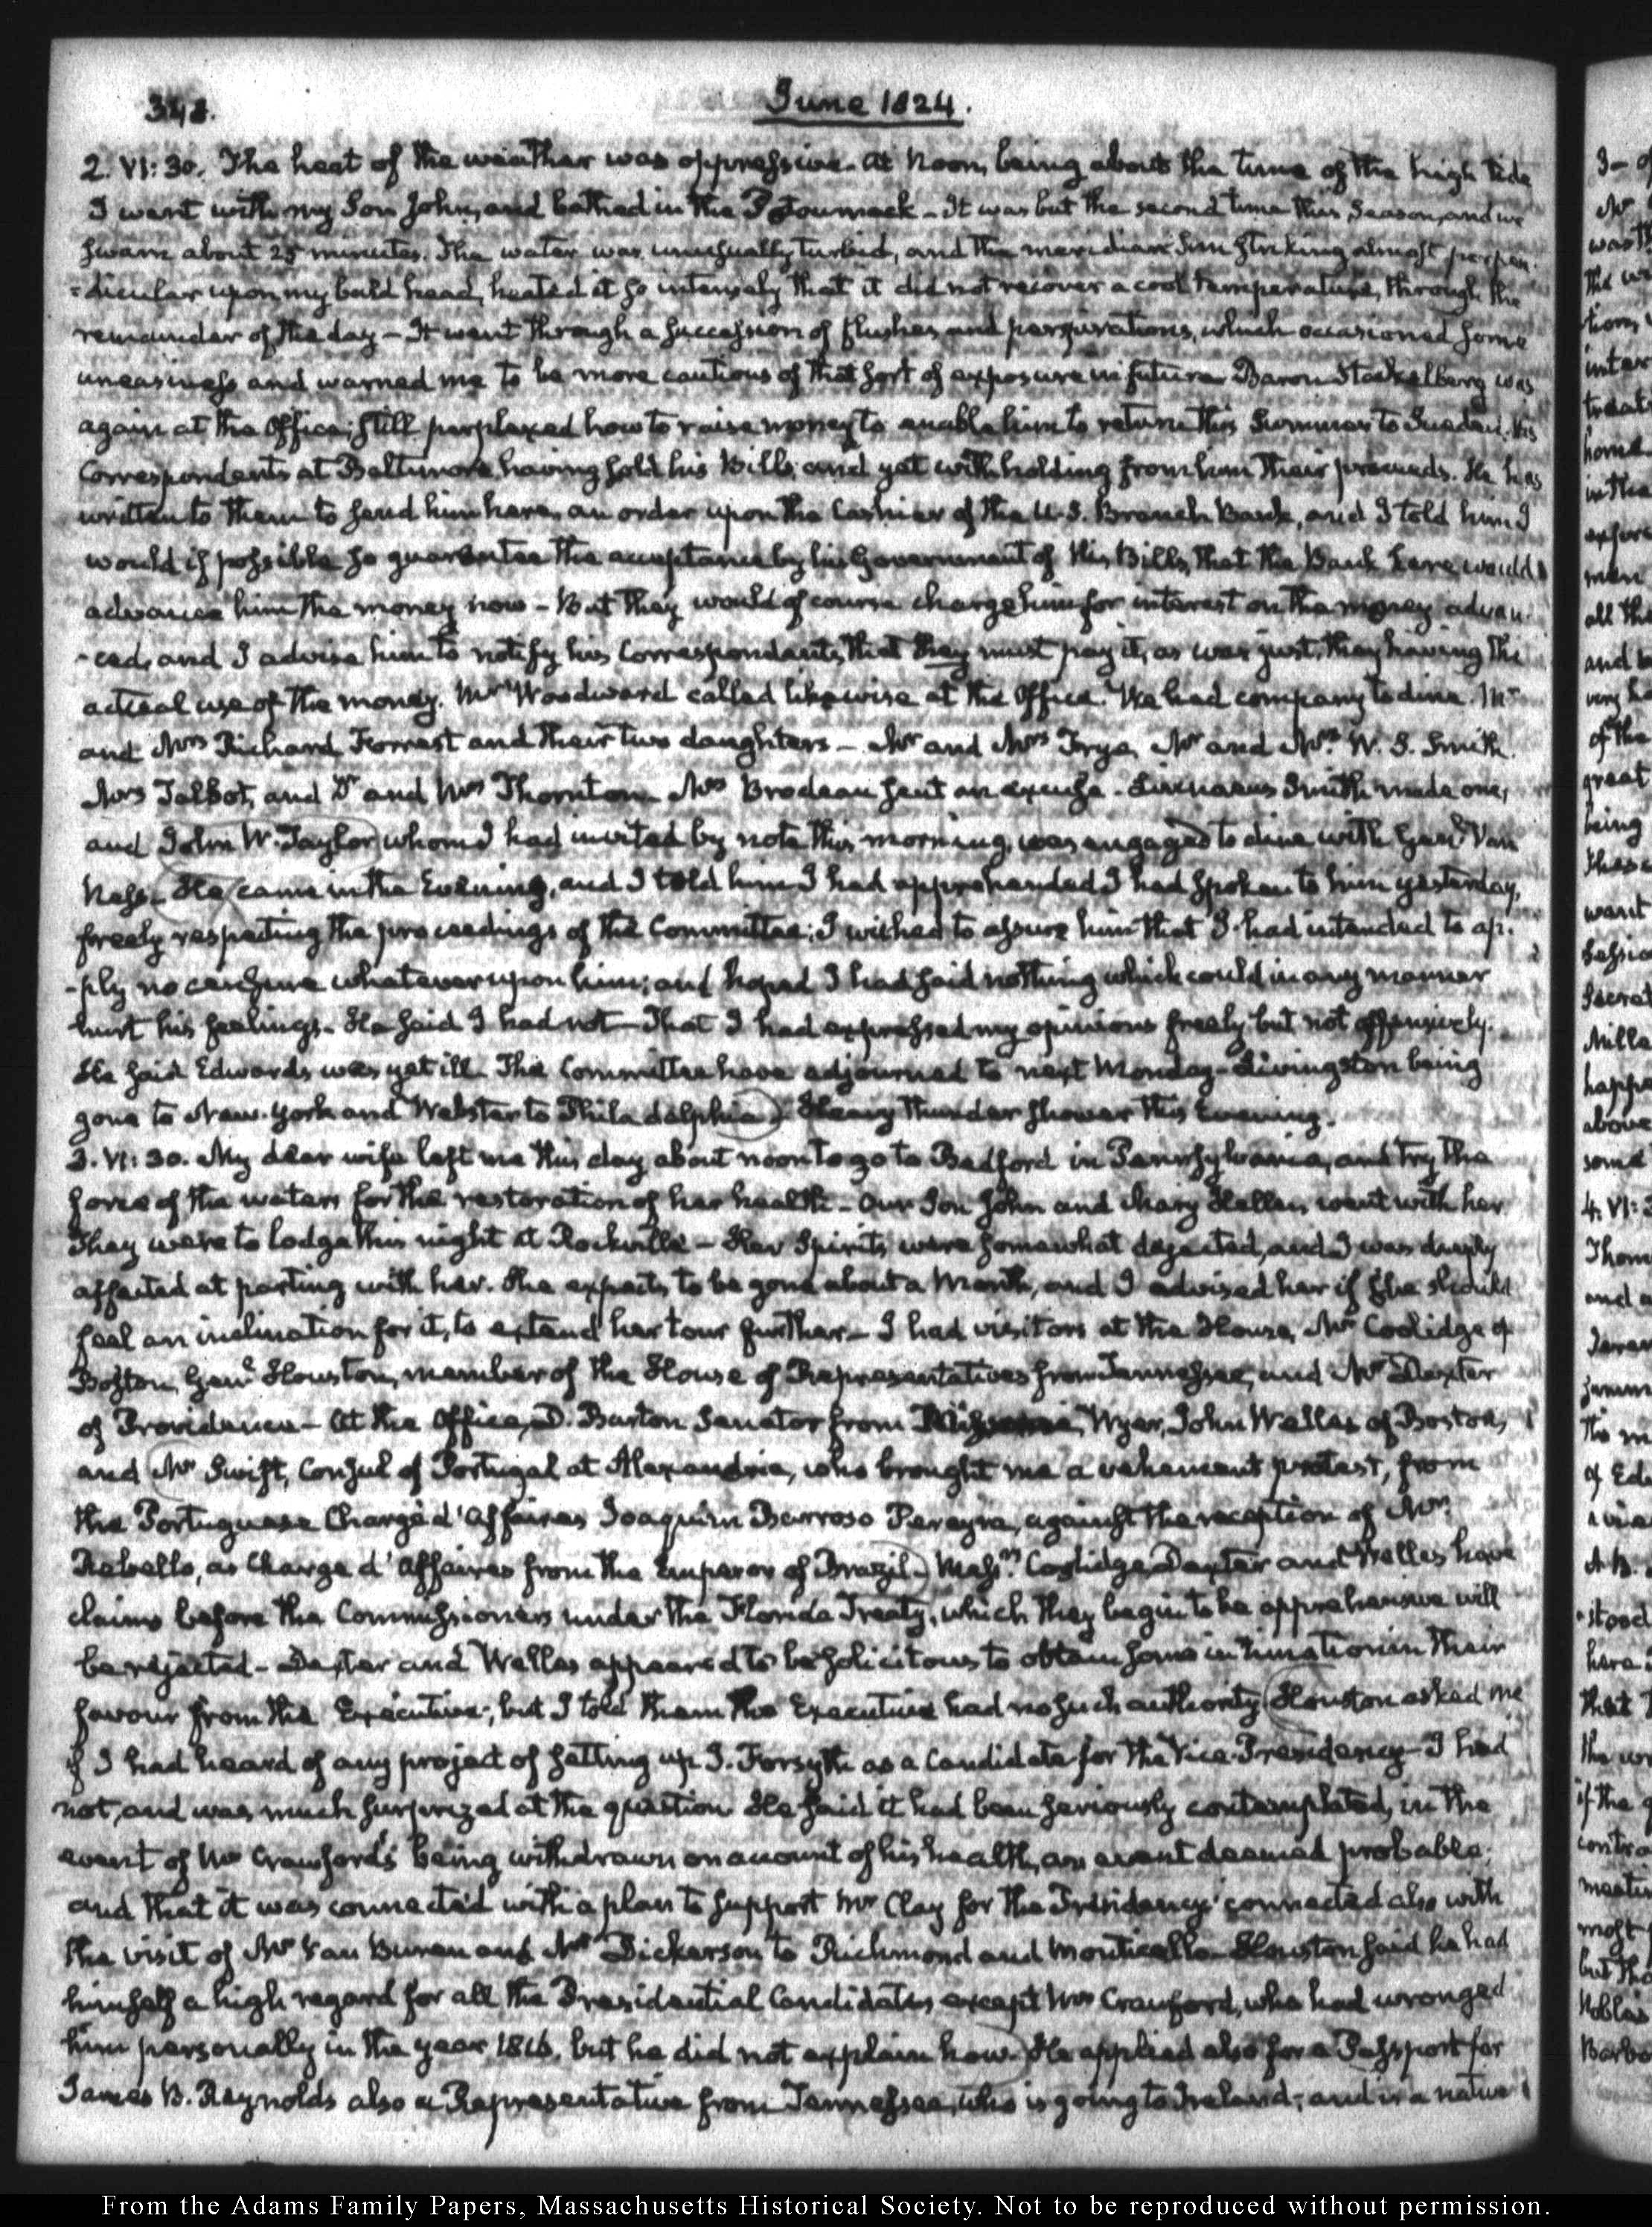 348.
June 1824.
2. VI: 30. The heat of the weather was oppressive. At Noon, being about the time of the high tide
I went with my Son John, and bathed in the Potowmack - It was but the second time this Season, and we
swam about 25 minutes. The water was unusually turbid, and the meridian Sun striking almost perpen-
=dicular upon my bald head, heated it so intensely that it did not recover a cool temperature, through the
remainder of the day - It went through a succession of flushes and perspirations, which occasioned some
uneasiness and warned me to be more cautious of that sort of exposure in future. Baron Stackelberg was
again at the Office; still perplexed how to raise money to enable him to return this Summer to Sweden. His
Correspondents at Baltimore, having sold his Bills, and yet withholding from him their proceeds. He has
written to them to send him here, an order upon the Cashier of the U.S. Branch Bank, and I told him I
would if possible so guarantee the acceptance by his Government of his Bills, that the Bank here would
advance him the money now - But they would of course charge him for interest on the money advan-
-ced, and I advise him to notify his Correspondents, that they must pay it, as was just, they having the
actual use of the money. Mr Woodward called likewise at the Office. We had company to dine. Mr
and Mrs Richard Forrest and their two daughters - Mr and Mrs Frye, Mr and Mrs W. S. Smith.
Mrs Talbot, and Dr and Mrs Thornton. Mrs Brodeau sent an excuse - Linnaeus Smith made one,
and John W. Taylor whom I had invited by note this morning, was engaged to dine with Genl Van
Ness - He came in the Evening, and I told him I had apprehended I had spoken to him yesterday,
freely respecting the proceedings of the Committee; I wished to assure him that I had intended to ap-
-ply no censure whatever upon him; and hoped I had said nothing which could in any manner
hurt his feelings. He said I had not - That I had expressed my opinions freely but not offensively.
He said Edwards was yet ill. The Committee have adjourned to next Monday - Livingston being
gone to New-York and Webster to Philadelphia) Heavy thunder shower this Evening.
3. VI: 30. My dear wife left me this day about noon to go to Bedford in Pennsylvania, and try the
force of the waters for the restoration of her health - Our Son John and Mary Hellen went with her
They were to lodge this night at Rockville - Her Spirits were somewhat dejected, and I was deeply
affected at parting with her. She expects to be gone about a Month, and I advised her if she should
feel an inclination for it, to extend her tour further - I had visitors at the House, Mr Coolidge of
Boston, Genl Houston, member of the House of Representatives from Tennessee, and Mr Dexter
of Providence - At the Office, D. Barton Senator from Missouri, Wyer, John Welles of Boston,
and (Mr Swift, Consul of Portugal at Alexandria, who brought me a vehement protest, from
the Portuguese Chargé d'Affaires Joaquim Barroso Pereyra, against the reception of Mr
Rebello, as Chargé d'Affaires from the Emperor of Brazil.) Messrs Coolidge, Dexter and Welles have
claims before the Commissioners under the Florida Treaty, which they begin to be apprehensive will
be rejected - Dexter and Welles appeared to be solicitous to obtain some intimation in their
favour from the Executive; but I told them the Executive had no such authority (Houston asked me
if I had heard of any project of setting up J. Forsyth as a Candidate for the Vice-Presidency - I had
not, and was much surprized at the question. He said it had been seriously contemplated, in the
event of Mr Crawford's being withdrawn on account of his health, an event deemed probable;
and that it was connected with a plan to support Mr Clay for the Presidency: connected also with
the visit of Mr Van Buren and Mr Dickerson to Richmond and Monticello. Houston said he had
himself a high regard for all the Presidential Candidates, except Mr Crawford, who had wronged
him personally in the year 1816, but he did not explain how.) He applied also for a Passport for
James B. Reynolds also a Representative from Tennessee, who is going to Ireland; and is a native
From the Adams Family Papers, Massachusetts Historical Society. Not to be reproduced without permission.